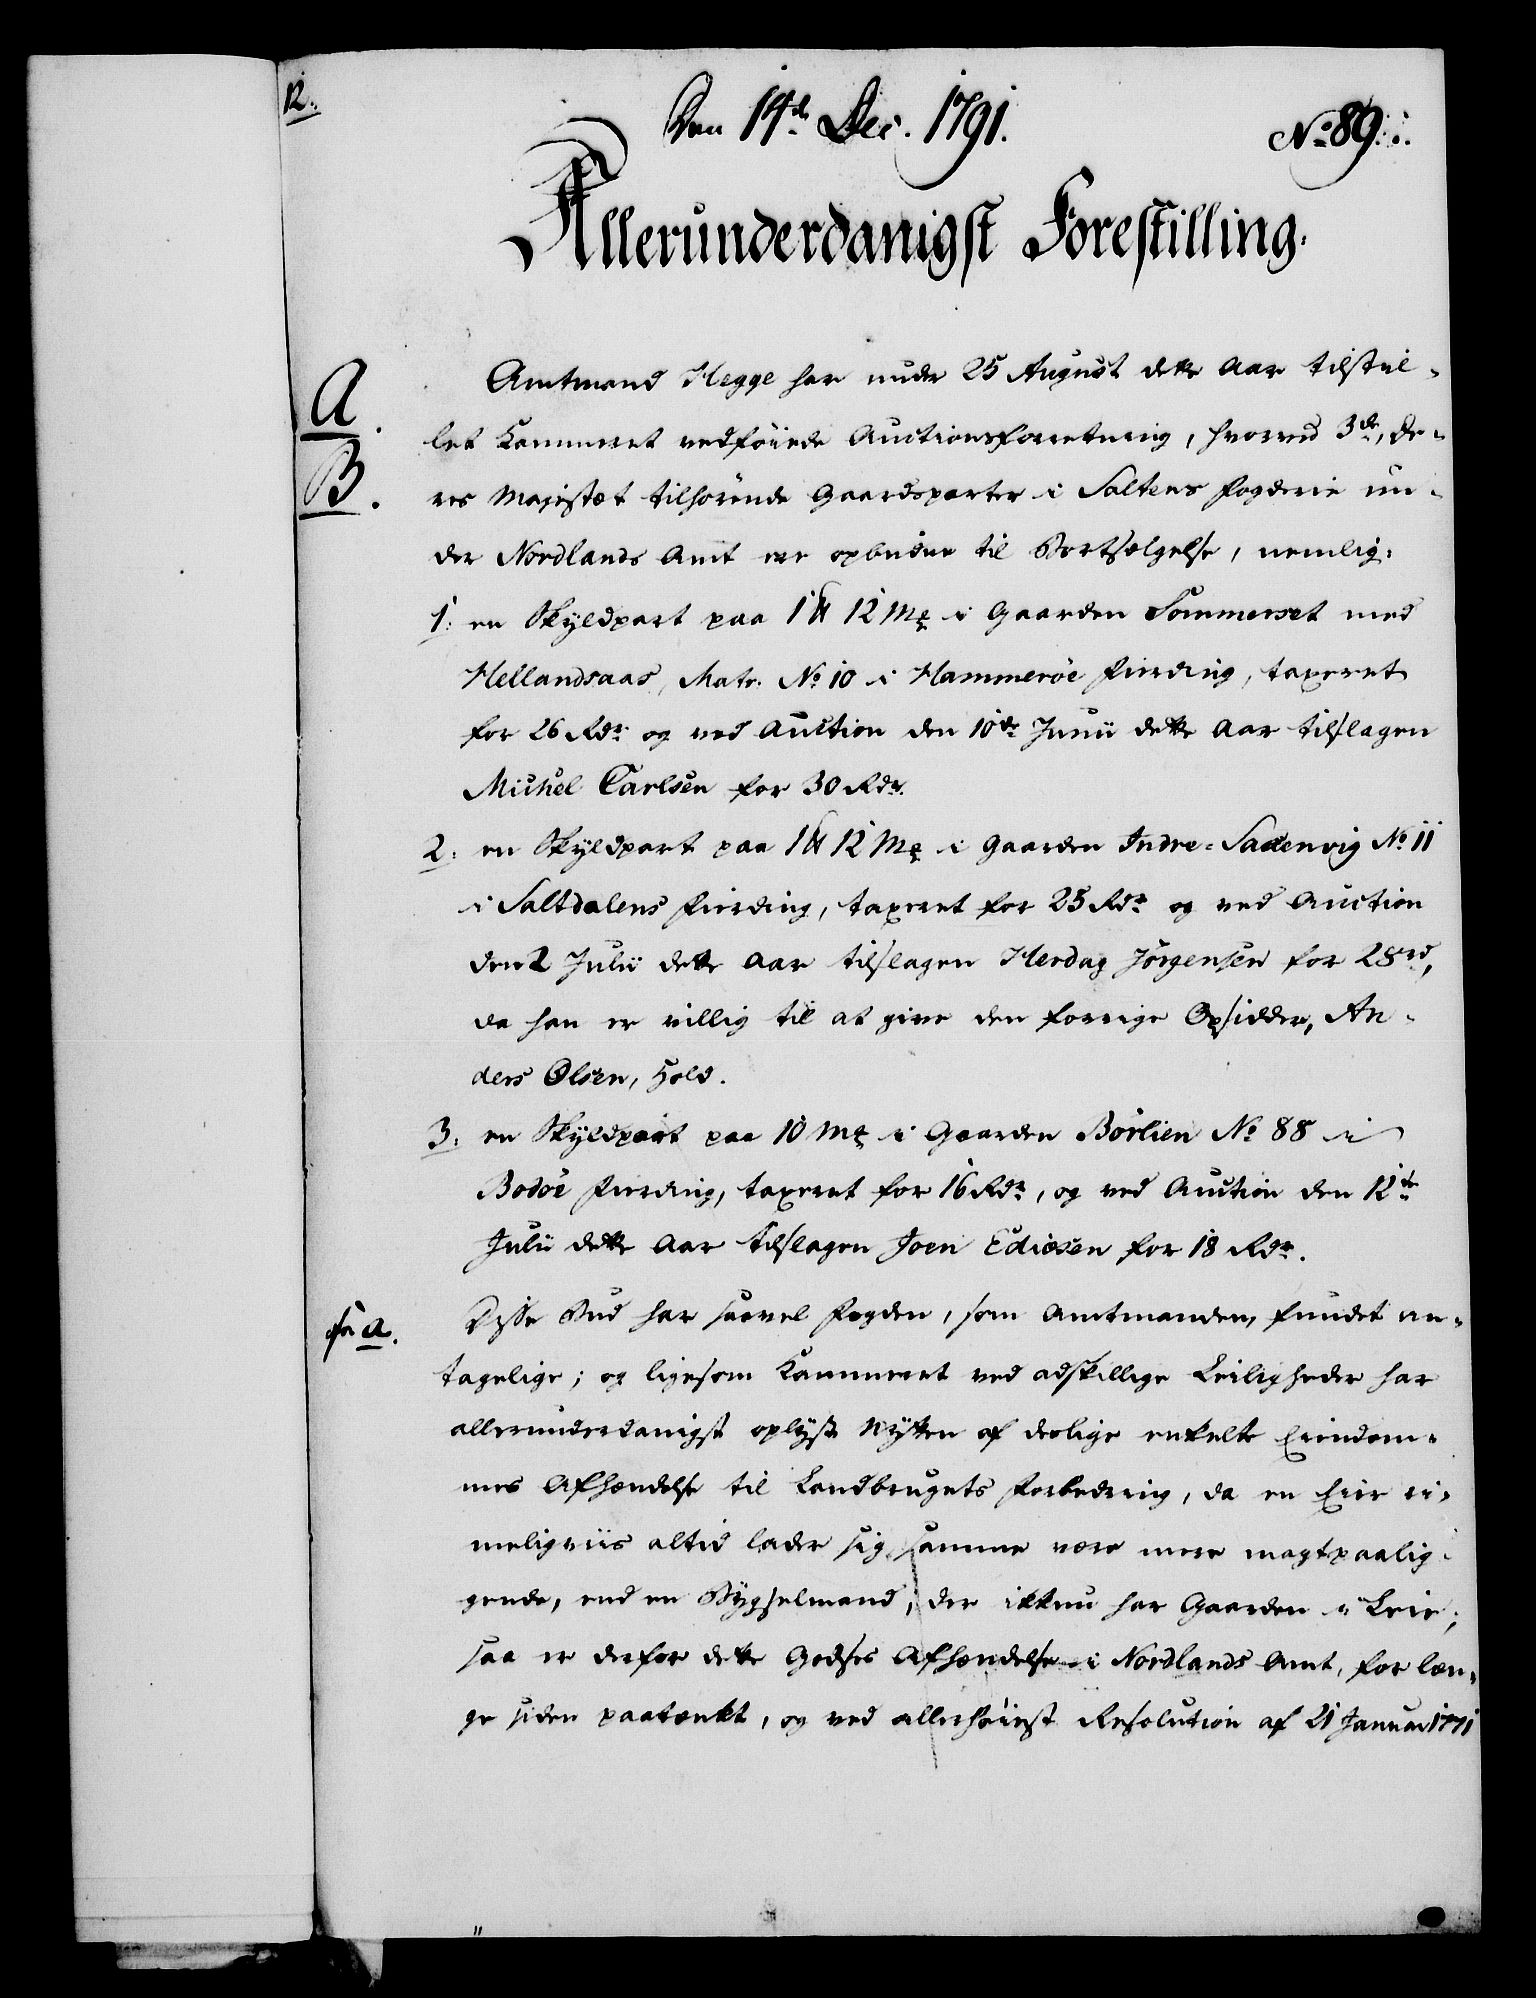 12.
Den 14de Dec. 1791.
No 89.
Allerunderdanigst Forestilling.
A.
Amtmand Hegge har under 25 August dette Aar tilstil-
B.
let Kammeret vedføiede Auctionsforretning, hvorved 3de, De-
res Majestæt tilhørende Gaardsparter i Saltens Fogderie un-
der Nordlands Amt ere opbudne til Bortsælgelse, nemlig:
1. en Skyldpart paa 1 ℔ 12 Mk i Gaarden Sommerset med
Hellandsaas, Matr. No 10 i Hammerøe Fierding, taxeret
for 26 Rdr og ved Auction den 10de Junii dette Aar tilslagen
Michel Carlsen for 30 Rdr.
2. en Skyldpart paa 1 ℔ 12 Mk i Gaarden Indre-Sadenvig No 11
i Saltdalens Fierding, taxeret for 25 Rdr og ved Auction
den 2 Julii dette Aar tilslagen Herdag Jørgensen for 28 rd,
da han er villig til at give den forrige Opsidder, An-
ders Olsen, Hold.
3. en Skyldpart paa 10 Mk i Gaarden Børlien No 88 i
Bodøe Fierding, taxeret for 16 Rdr, og ved Auction den 12te
Julii dette Aar tilslagen Joen Ediasen for 18 Rdr.
a.
Disse Bud har saavel Fogden, som Amtmanden, fundet an-
tagelige; og ligesom Kammeret ved adskillige Leiligheder har
allerunderdanigst oplyst Nytten af deslige enkelte Eiendom-
mes Afhændelse til Landbrugets Forbedring, da en Eier ri-
meligviis altid lader sig samme være mere magtpaalig-
gende, end en Bygselmand, der ikkun har Gaarden i Leie;
saa er derfor dette Godses Afhændelse i Nordlands Amt, for læn-
ge siden paatænkt, og ved allerhøiest Resolution af 21 Januar 1771